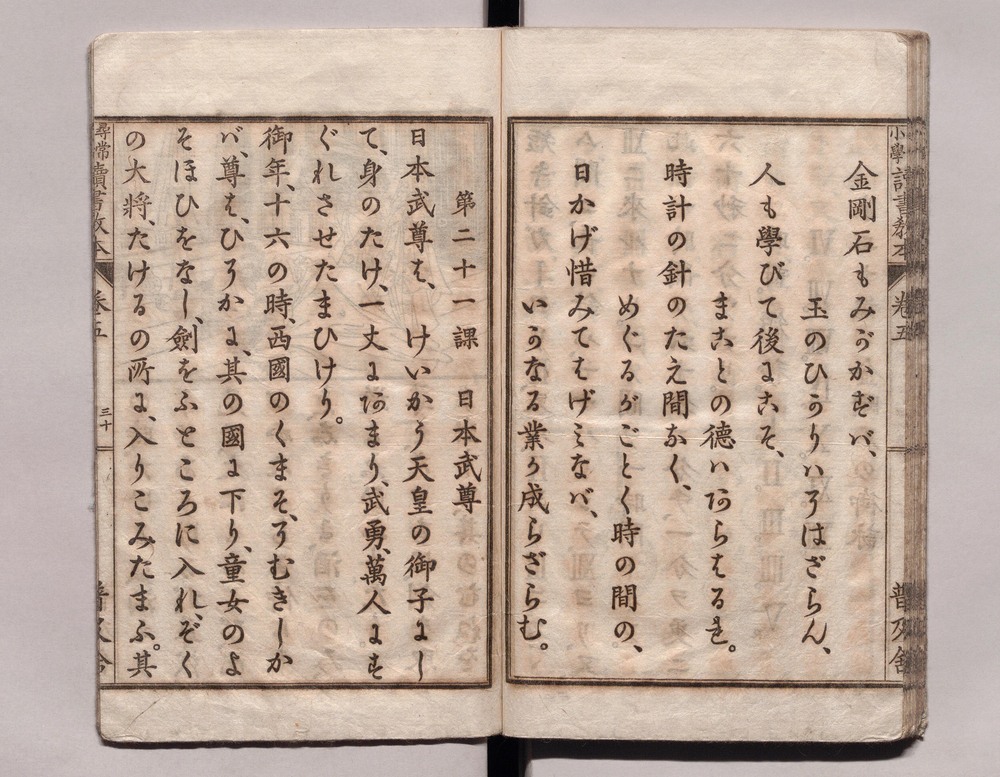 金剛石もみがかずバ、
玉のひかりハそはざらん、
人も學びて後にこそ、
まことの德ハあらはるれ。
時計の針のたえ間なく、
めぐるがごとく時の間の、
日かげ惜みてはげミなバ、
いかなる業か成らざらむ。
小學讀書教本
卷五
普及舍
第二十一課 日本武尊
日本武尊は、けいかう天皇の御子にし
て、身のたけ、一丈にあまり、武勇、萬人にす
ぐれさせたまひけり。
御年、十六の時、西國のくまそ、そむきしか
バ、尊は、ひそかに、其の國に下り、童女のよ
そほひをなし、劍をふところに入れ、ぞく
の大將たけるの所に、入りこみたまふ。其
尋常讀書教本
卷五
三十
普及舍